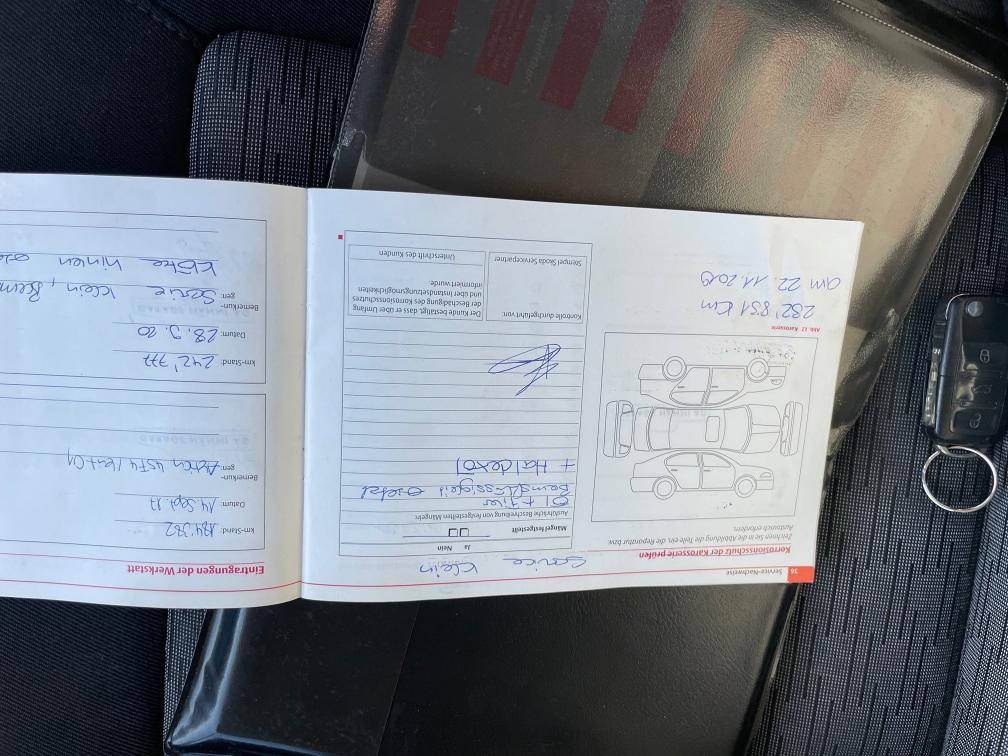 36 Service-Nachweise
Korrosionsschutz der Karosserie prüfen
Zeichnen Sie in die Abbildung die Teile ein, die Reparatur bzw.
Austausch erfordern.
Abb. 17 Karosserie
282'851 Km
am 22.11.2019
Service Klein
Ja Nein
Mängel festgestellt
Ausführliche Beschreibung von festgestellten Mängeln:
Öl + Filter
+ Haldexöl
Kontrolle durchgeführt von:
Stempel Skoda Servicepartner
Der Kunde bestätigt, dass er über Umfang
der Beschädigung des Korrosionsschutzes
und über Instandsetzungsmöglichkeiten
informiert wurde.
Unterschrift des Kunden
Eintragungen der Werkstatt
km-Stand: 184'382
Datum: 14. Sept. 17
Bemerkun-
gen:
km-Stand: 242'777
Datum: 28.9.20
Bemerkun-
gen: Service Klein,
Klötze hinten